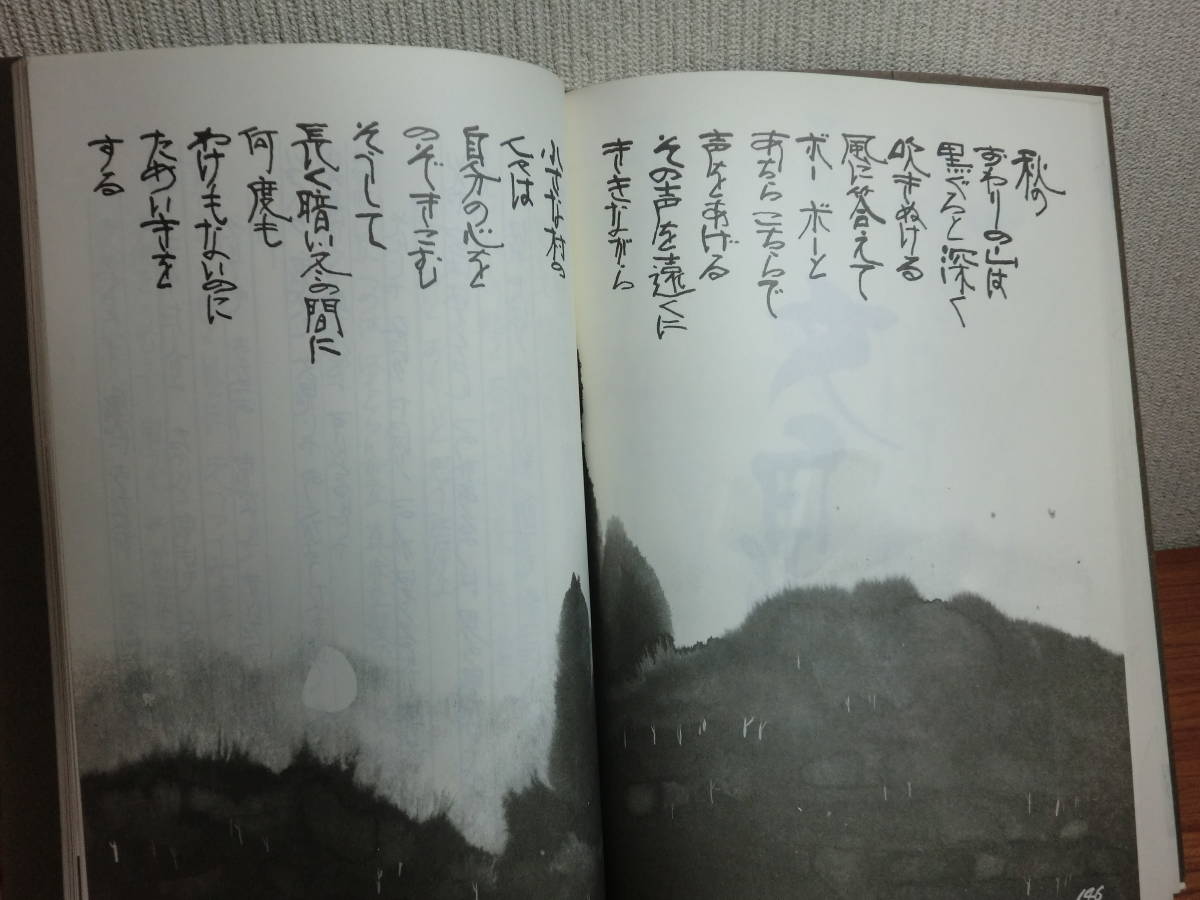 秋の
おわりの山は
黒ぐろと深く
吹きぬける
風に答えて
ボーボーと
あちらこちらで
声をあげる
その声を遠くに
ききながら
小さな村の
人々は
自分の心を
のぞきこむ
そうして
長く暗い冬の間に
何度も
わけもないのに
ためいきを
する
146